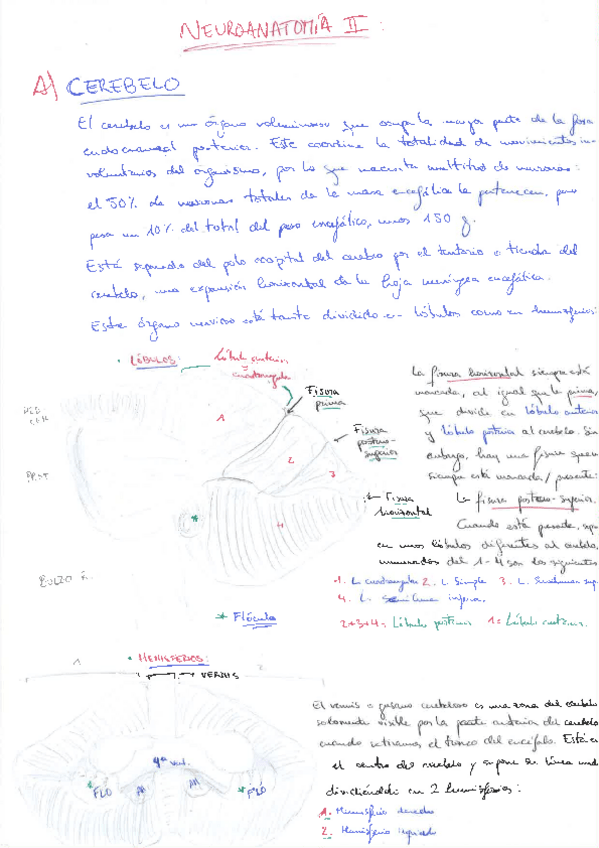 NEUROANATOMÍA II:
A) CEREBELO
El cerebelo es un órgano voluminoso que ocupa la mayor parte de la fosa
endocraneal posterior. Este coordina la totalidad de movimientos in-
voluntarios del organismo, por lo que necesita multitud de neuronas:
el 50% de neuronas totales de la masa encefálica le pertenecen, pero
pesa un 10% del total del peso encefálico, unos 150 g.
Está separado del polo occipital del cerebro por el tentorio o tienda del
cerebelo, una expansión horizontal de la hoja meníngea encefálica.
Este órgano nervioso está tanto dividido en lóbulos como en hemisferios:
• LÓBULOS:
Lóbulo anterior
=
cuadrangular
Fisura
prima
Fisura
postero-
superior
Fisura
horizontal
A
2
3
4
*
PED
PROT
BULZO R.
* Flóculo
La fisura horizontal siempre está
marcada, al igual que la prima,
que divide en lóbulo anterior
y lóbulo posterior al cerebelo. Sin
embargo, hay una fisura que no
siempre está marcada/presente:
La fisura postero-superior.
Cuando está presente,
en unos lóbulos diferentes al cerebelo,
numerados del 1-4 son los siguientes
1. L. cuadrangular 2. L. Simple 3. L. Semilunar sup.
4. L. Semilunar inferior.
2+3+4= Lóbulo posterior 1= Lóbulo anterior.
• HEMISFERIOS:
VERMIS
1
2
4º vent.
FLO
AM
AM
FLO
El vermis o gusano cerebeloso es una zona del cerebelo
solamente visible por la parte anterior del cerebelo
cuando retiramos el tronco del encéfalo. Está en
el centro del cerebelo y supone su línea media
dividiéndolo en 2 hemisferios:
1. Hemisferio derecho
2. Hemisferio izquierdo